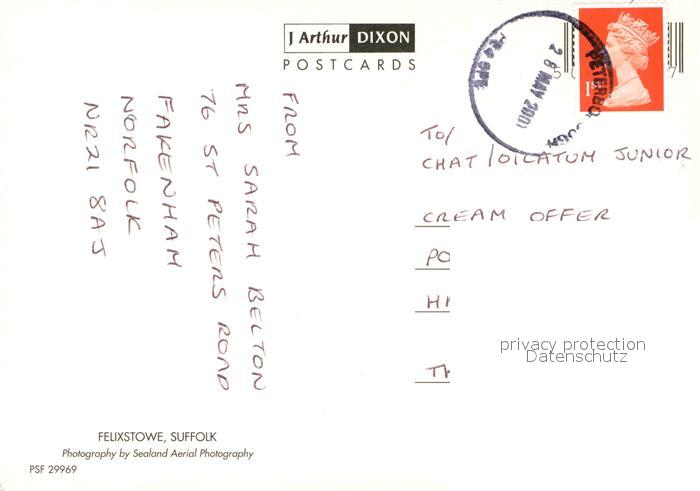 J Arthur DIXON
POSTCARDS
PETERBOROUGH
28 MAY 2001
1st
5
7
FROM
MRS SARAH BELTON
76 ST PETERS ROAD
FAKENHAM
NORFOLK
NR21 8AJ
TO/
CHAT/OILATUM JUNIOR
CREAM OFFER
PO
HI
TH
privacy protection
Datenschutz
FELIXSTOWE, SUFFOLK
Photography by Sealand Aerial Photography
PSF 29969